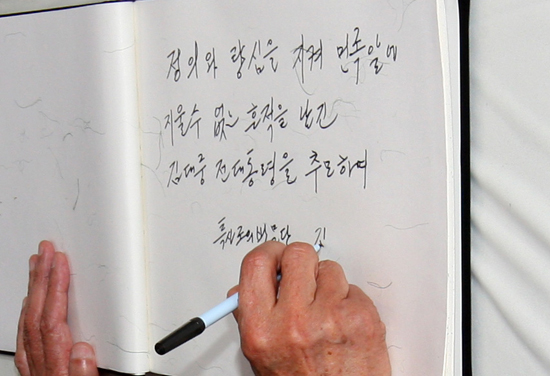 정의와 량심을 지켜 민족앞에
지울수 없는 흔적을 남긴
김대중 전대통령을 추모하여
특사조의방문단